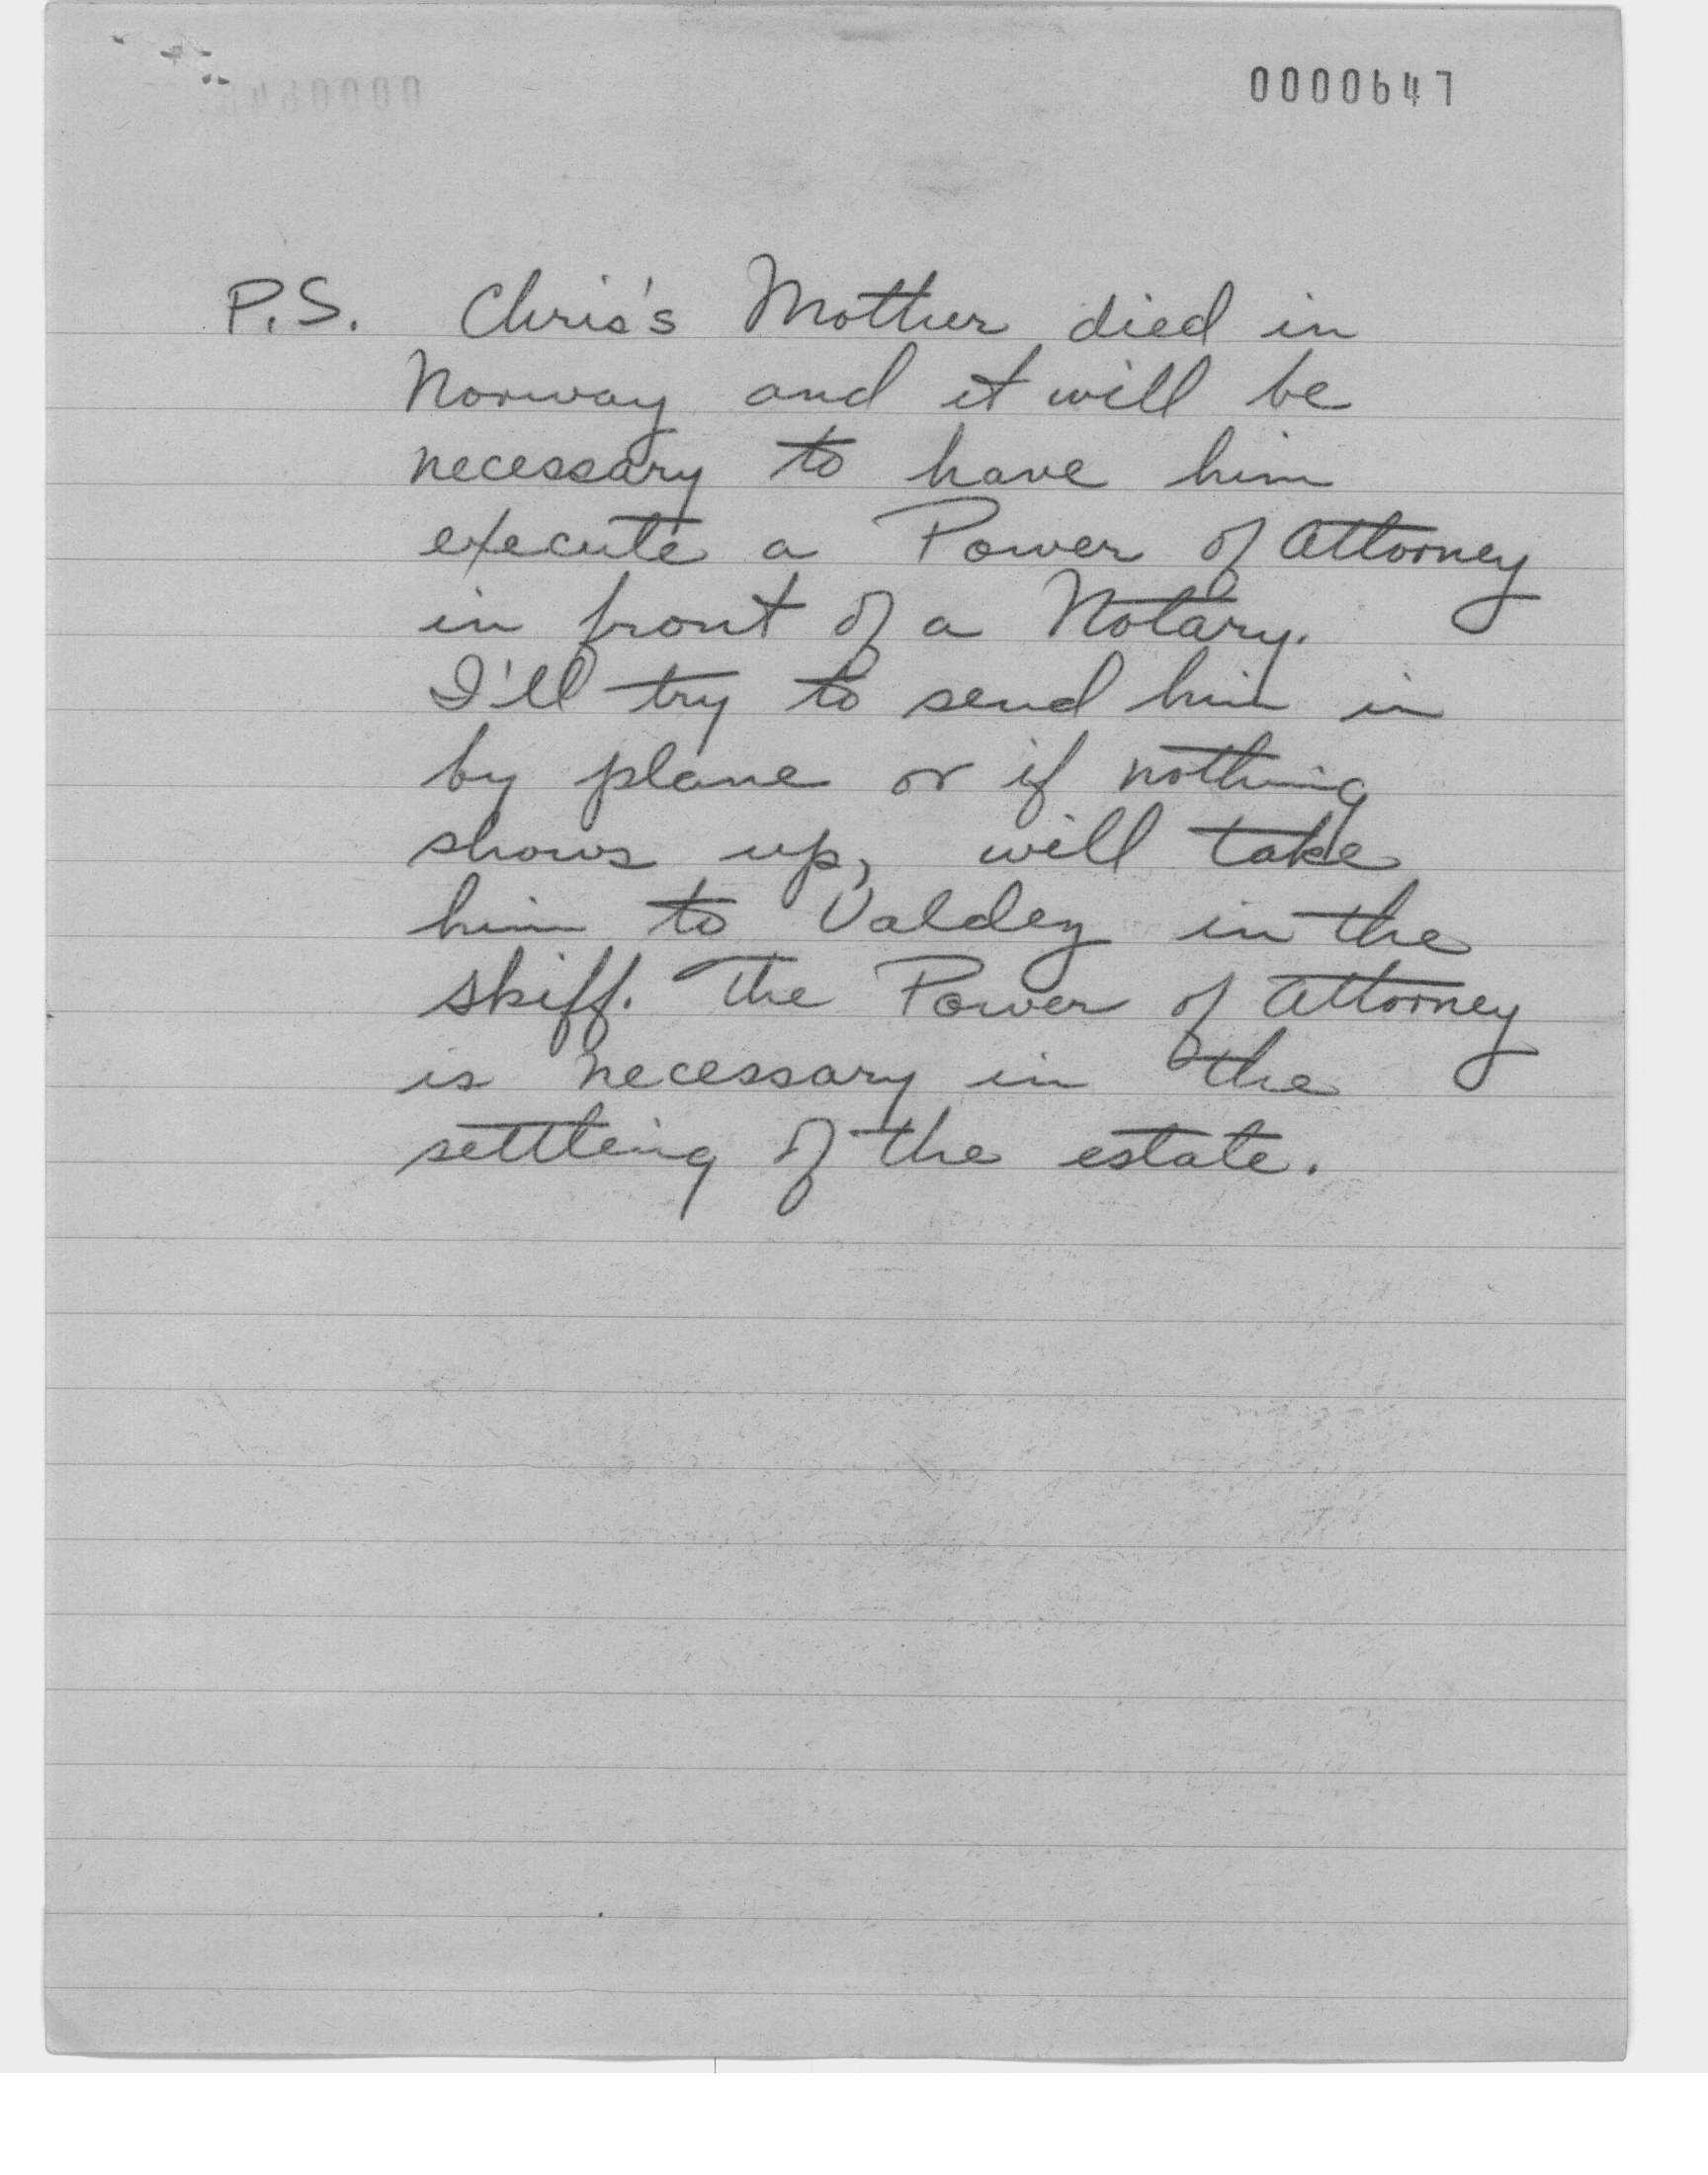 0000647
P.S. Chris's Mother died in
Norway and it will be
necessary to have him
execute a Power of Attorney
in front of a Notary.
I'll try to send him in
by plane or if nothing
shows up, will take
him to Valdez in the
skiff. The Power of Attorney
is necessary in the
settling of the estate.